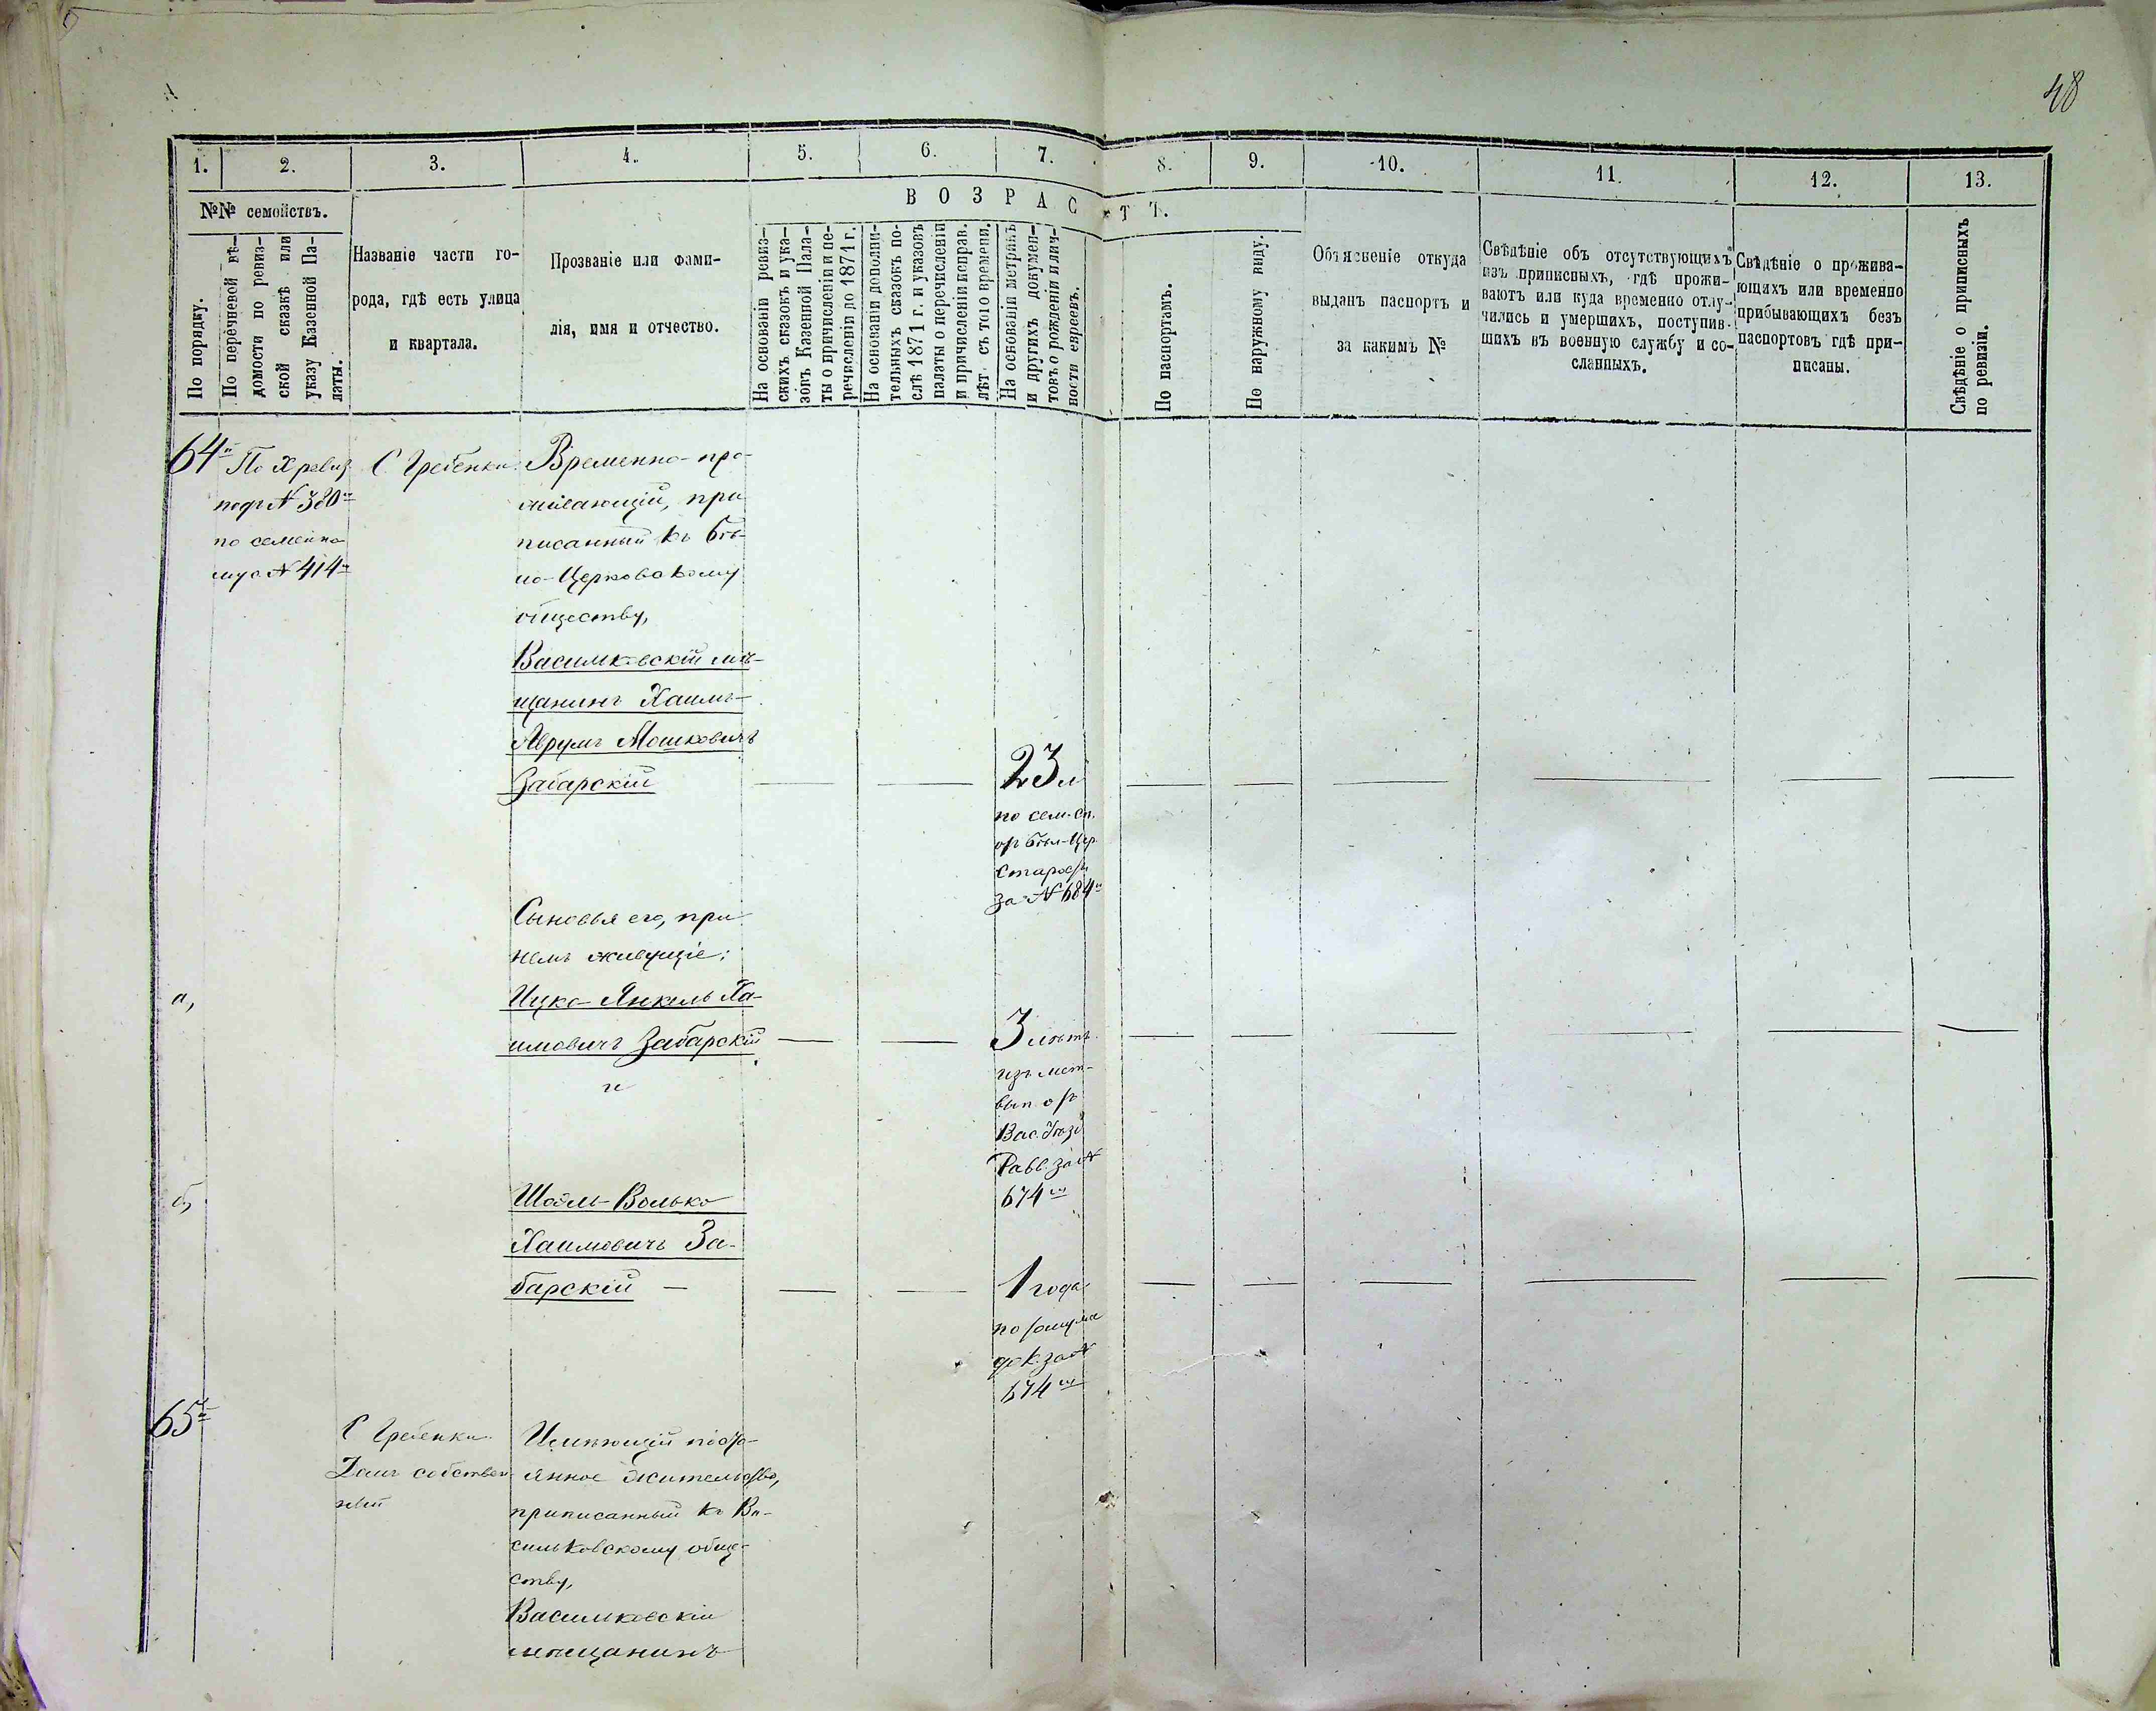 48
1.
2.
3.
4.
5.
6.
7.
8.
9.
10.
11.
12.
13.
№№ семействъ.
ВОЗРАСТЪ.
По порядку.
По перечневой вѣ-
домости по ревиз-
ской сказкѣ или
указу Казенной Па-
латы.
Названіе части го-
рода, гдѣ есть улица
и квартала.
Прозваніе или фами-
лія, имя и отчество.
На основаніи ревиз-
скихъ сказокъ и ука-
зовъ Казенной Пала-
ты о причисленіи и пе-
речисленіи до 1871 г.
На основаніи дополни-
тельныхъ сказокъ по-
слѣ 1871 г. и указовъ
палаты о перечисленіи
и причисленіи исправ.
лѣт. съ того времени.
На основаніи метрикъ
и другихъ докумен-
товъ о рожденіи илич-
ности евреевъ.
По паспортамъ.
По наружному виду.
Объясненіе откуда
выданъ паспортъ и
за какимъ №
Свѣдѣніе объ отсутствующихъ
изъ приписныхъ, гдѣ прожи-
ваютъ или куда временно отлу-
чились и умершихъ, поступив-
шихъ въ военную службу и со-
сланныхъ.
Свѣдѣніе о прожива-
ющихъ или временно
прибывающихъ безъ
паспортовъ гдѣ при-
писаны.
Свѣдѣніе о приписныхъ
по ревизіи.
64й
По X ревиз
подъ № 380м
по семейно
му № 414м
С Гребенки
Временно-про-
живающій, при
писанный къ Бѣ-
ло-Церковскому
обществу,
Васильковскій мѣ-
щанинъ Хаимъ-
Аврумъ Мошковичъ
Забарскій
23 л
по сем. сп.
отъ Бѣл-Цер.
Старосты
за № 684м
Сыновья его, при
немъ живущіе:
а,
Ицко-Янкель Ха-
имовичъ Забарскій
и
3 лѣтъ
изъ мет-
вып отъ
Вас. Уѣзд
Равв. за №
674м
б,
Шоэль-Волько
Хаимовичъ За-
барскій —
1 года
по
док. за №
674м
65й
С Гребенки
Домъ собствен-
ный
Имѣющій посто-
янное жительство,
приписанный къ Ва-
сильковскому обще-
ству,
Васильковскій
мѣщанинъ